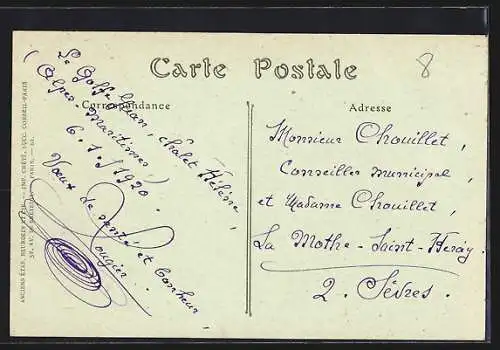 Carte Postale
8
Correspondance
Adresse
Le Golfe-Juan, chalet Hélène,
(Alpes-Maritimes)
6.1.1920.
Vœux de santé et bonheur,
Rougier.
Monsieur Chouillet,
Conseiller municipal,
et Madame Chouillet,
La Mothe-Saint-Heray
2. Sèvres.
ANCIENS ÉTAB. NEURDEIN ET CIE. — IMP. CRÉTÉ, SUCC. CORBEIL-PARIS
52, AV. DE BRETEUIL, PARIS.